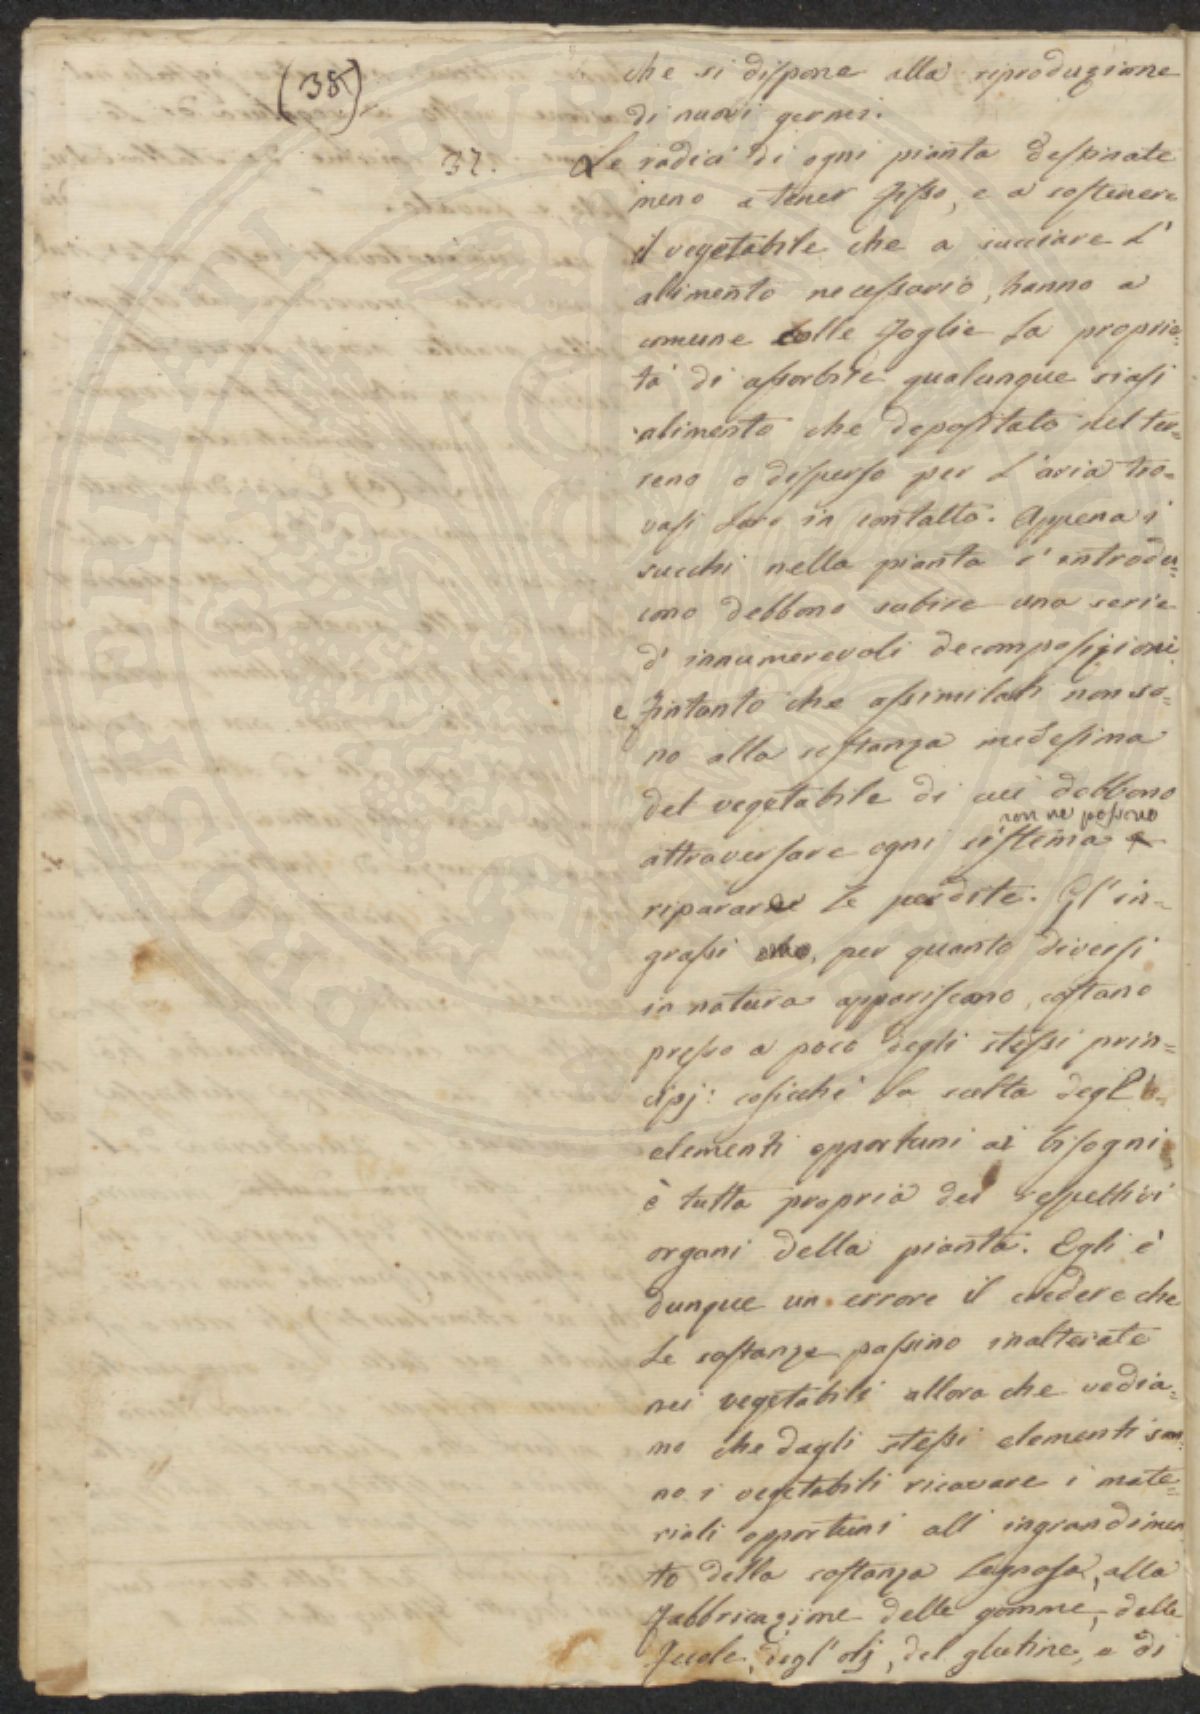 (38)
che si dispone alla riproduzione
di nuovi germi.
37. Le radici di ogni pianta destinate
meno a tener fisso, e a sostenere
il vegetabile che a succiare l'
alimento necessario, hanno a
comune colle foglie la proprie=
tà di assorbire qualunque siasi
alimento che depositato nel ter=
reno o disperso per l'aria tro=
vasi loro in contatto. Appena i
succhi nella pianta s'introdu=
cono debbono subire una serie
d'innumerevoli decomposizioni
e fintanto che assimilati non so=
no alla sostanza medesima
del vegetabile di cui debbono
attraversare ogni sistema non ne possono
riparare le perdite. Gl'in=
grassi per quanto diversi
in natura appariscano, costano
presso a poco degli stessi prin=
cipj: cosicchè la scelta degl'
elementi opportuni ai bisogni
è tutta propria dei respettivi
organi della pianta. Egli è
dunque un errore il credere che
le sostanze passino inalterate
nei vegetabili allora che vedia=
mo che dagli stessi elementi san=
no i vegetabili ricavare i mate=
riali opportuni all'ingrandimen
to della sostanza legnosa, alla
fabbricazione delle gomme, delle
fecole, degl'olj, del glutine, e di